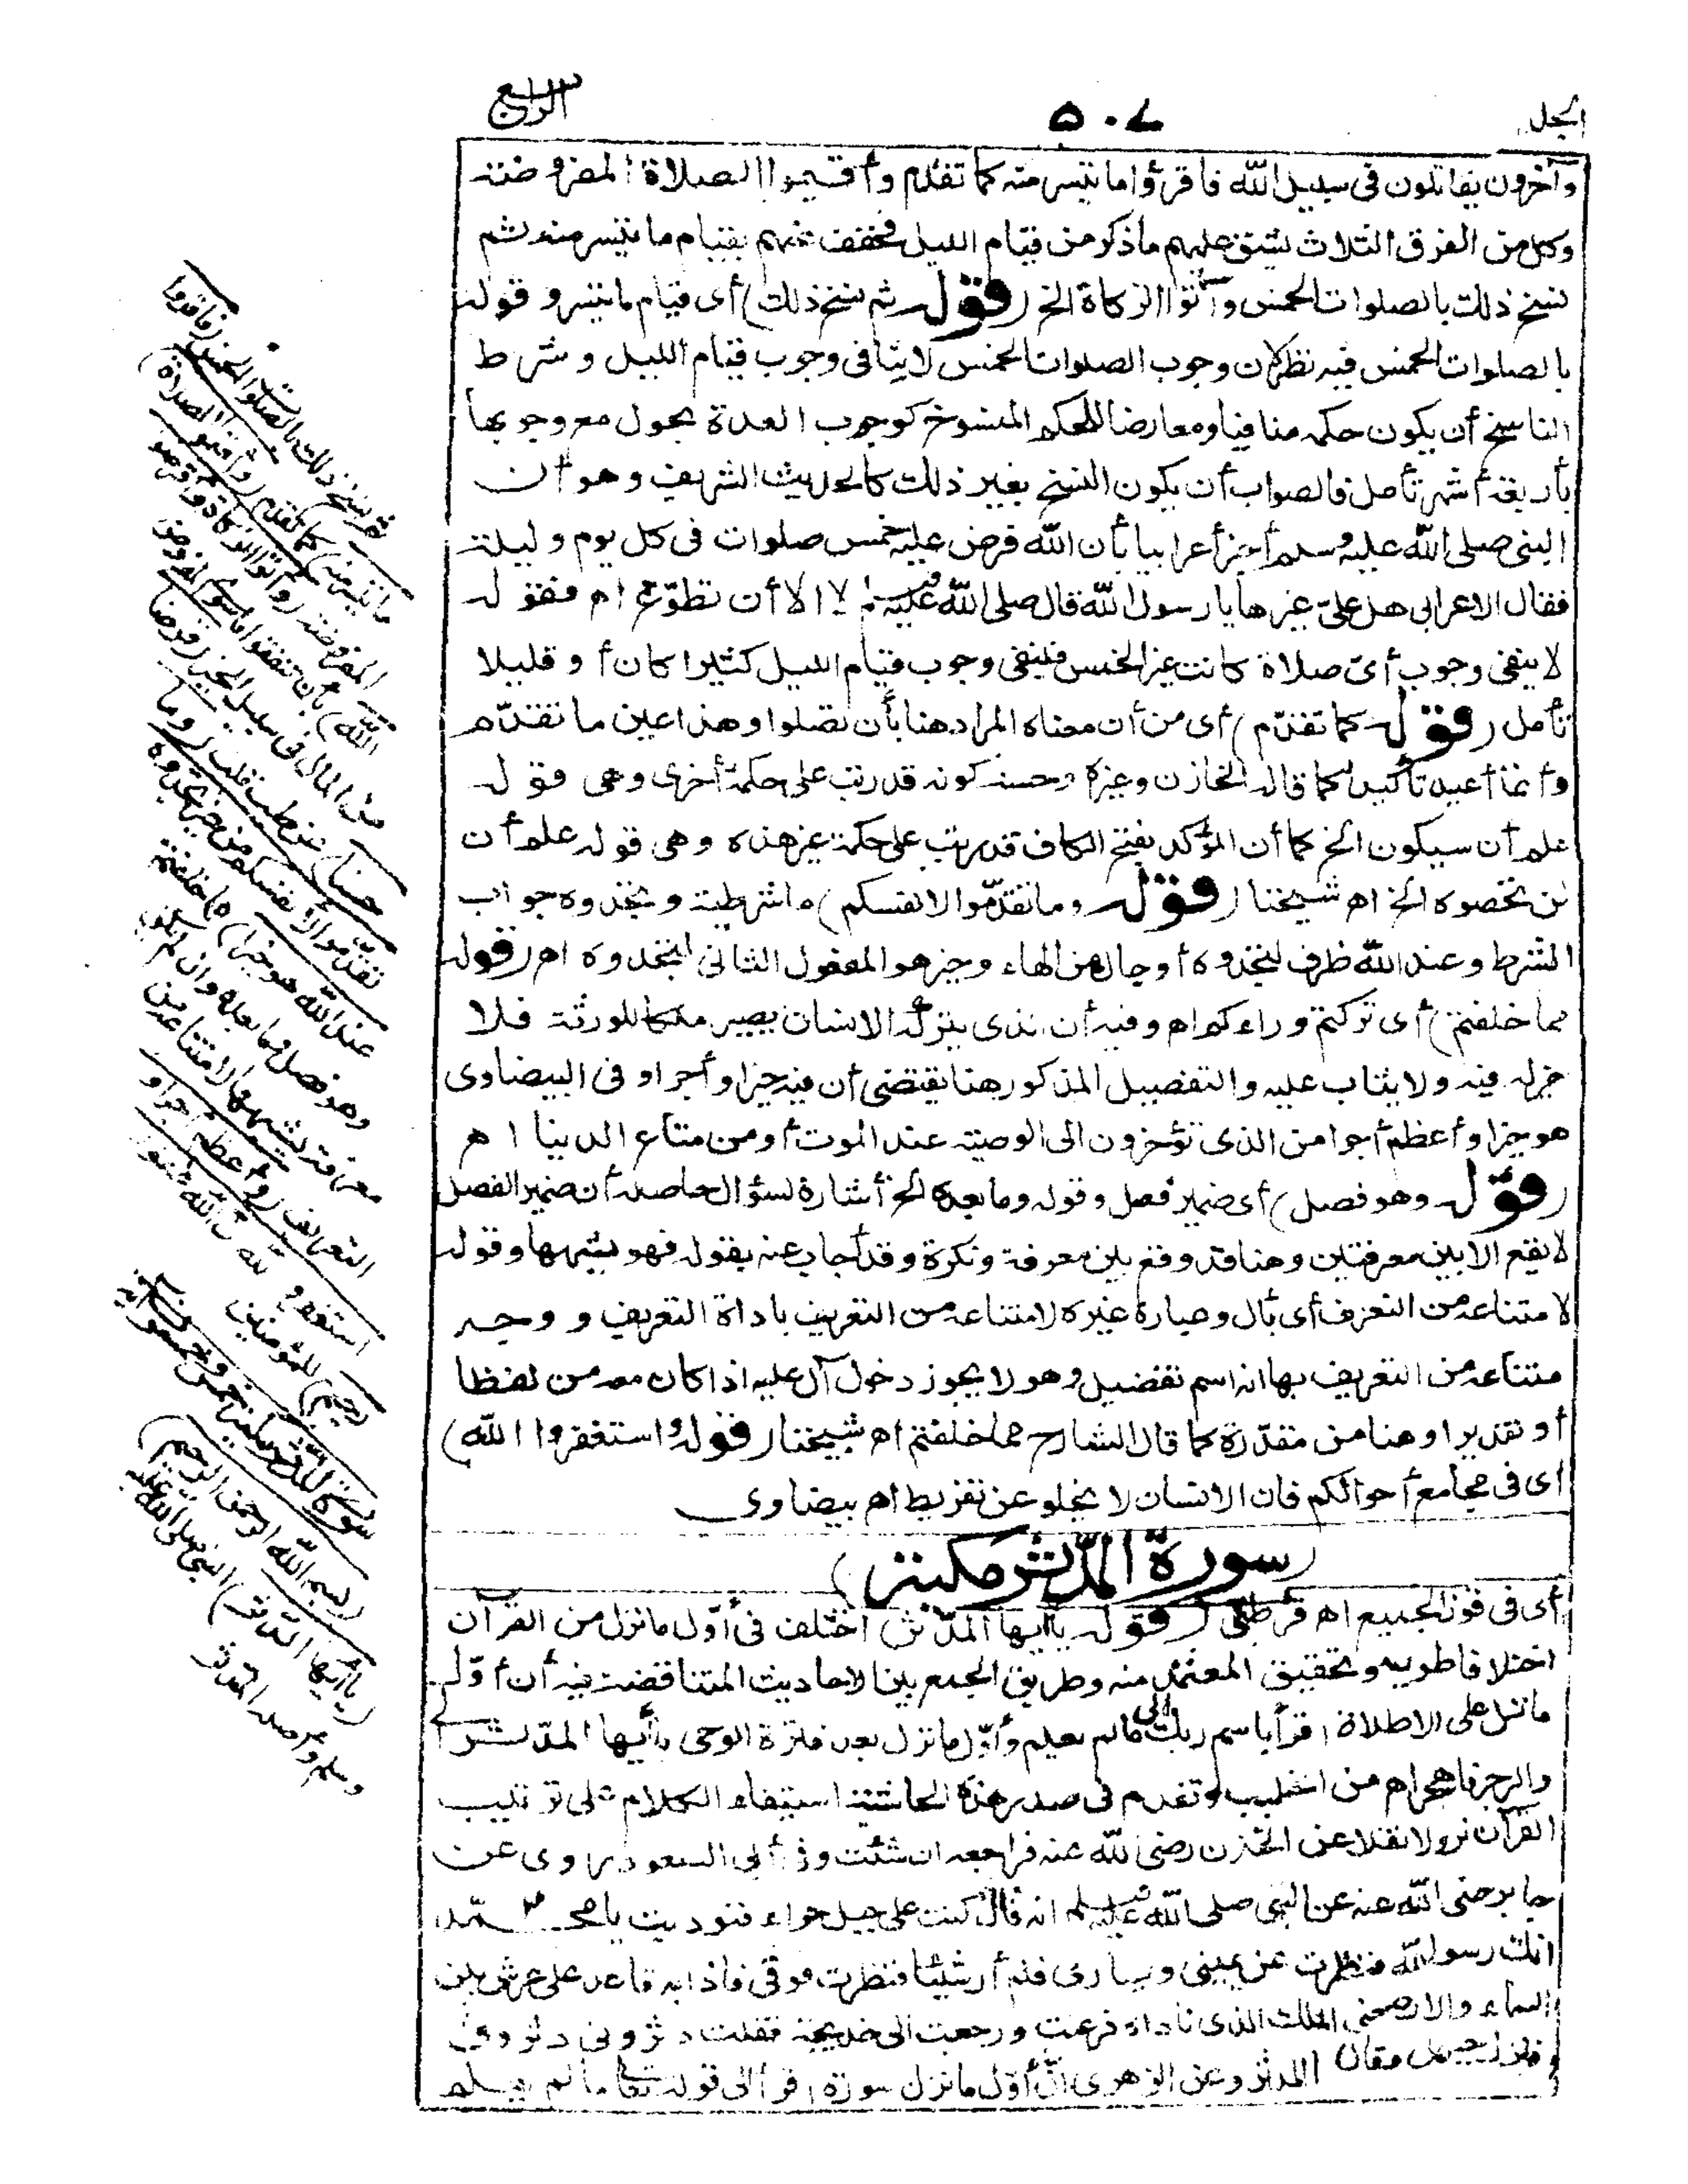 الجمل
٥٠٧
الرابع
وآخرون يقاتلون فى سبيل الله فاقرؤا ما تيسر منه كما تقدم وأقيموا الصلاة المفروضة
وكل من الفرق الثلاث يشق عليهم ما ذكر من قيام الليل فخفف عنهم بقيام ما تيسر منه ثم
نسخ ذلك بالصلوات الخمس وآتوا الزكاة الخ (قوله ثم نسخ ذلك) أى قيام ما تيسر وقوله
بالصلوات الخمس فيه نظر لان وجوب الصلوات الخمس لا ينافى وجوب قيام الليل وشرط
الناسخ أن يكون حكمه منافيا ومعارضا للحكم المنسوخ كوجوب العدة بحول مع وجوبها
بأربعة أشهر تأمل فالصواب أن يكون النسخ بغير ذلك كالحديث الشريف وهو أن
النبى صلى الله عليه وسلم أخبر أعرابيا بأن الله فرض عليه خمس صلوات فى كل يوم وليلة
فقال الاعرابى هل علىّ غيرها يا رسول الله قال صلى الله عليه وسلم لا الا أن تطوّع اه فقوله
لا ينفى وجوب أىّ صلاة كانت غير الخمس فينفى وجوب قيام الليل كثيرا كان أو قليلا
تأمل (قوله كما تقدّم) أى من أن معناه المراد هنا بأن تصلوا وهذا عين ما تقدّم
وأنما أعيد تأكيدا كما قال الخازن وغيره وحسنه كونه قد رتب على حكمة أخرى وهى قوله
علم أن سيكون الخ كما أن المؤكد بفتح الكاف قد رتب على حكمة غير هذه وهى قوله علم أن
لن تحصوه الخ اه شيخنا (قوله وما تقدّموا لانفسكم) ما شرطية وتجدوه جواب
الشرط وعند الله ظرف لتجدوه أو حال من الهاء وخير هو المفعول الثانى لتجدوه اه (قوله
مما خلفتم) أى تركتم وراءكم اه وفيه أن الذى يتركه الانسان يصير ملكا للورثة فلا
خير له فيه ولا يثاب عليه والتفضيل المذكور هنا يقتضى أن فيه خيرا وأجرا وفى البيضاوى
هو خيرا وأعظم أجرا من الذى تؤخرون الى الوصية عند الموت أو من متاع الدنيا اه
(قوله وهو فصل) أى ضمير فصل وقوله وما بعده الخ أشارة لسؤال حاصله أن ضمير الفصل
لا يقع الا بين معرفتين وهنا قد وقع بين معرفة ونكرة وقد أجاب عنه بقوله فهو يشبهها وقوله
لامتناعه من التعريف أى بأل وعبارة غيره لامتناعه من التعريف باداة التعريف ووجه
امتناعه من التعريف بها انه اسم تفضيل وهو لا يجوز دخول أل عليه اذا كان معه من لفظا
أو تقديرا وهنا من مقدّرة كما قال الشارح مما خلفتم اه شيخنا (قوله واستغفروا الله)
أى فى مجامع أحوالكم فان الانسان لا يخلو عن تفريط اه بيضاوى
(سورة المدّثر مكية)
أى فى قول الجميع اه قرطبى (قوله يا أيها المدّثر) اختلف فى أوّل ما نزل من القرآن
اختلافا طويلا وتحقيق المعتمد منه وطريق الجمع بين الاحاديث المتناقضة فيه أن أوّل
ما نزل على الاطلاق اقرأ باسم ربك الى ما لم يعلم وأوّل ما نزل بعد فترة الوحى يا أيها المدّثر الى
والرجز فاهجر اه من الخطيب وتقدم فى صدر هذه الحاشية استيفاء الكلام على ترتيب
القرآن نزولا نقلا عن الخازن رضى الله عنه فراجعه ان شئت وفى أبى السعود روى عن
جابر رضى الله عنه عن النبى صلى الله عليه وسلم انه قال كنت على جبل حراء فنوديت يا محمد
انك رسول الله فنظرت عن يمينى ويسارى فلم أر شيئا فنظرت فوقى فاذا به قاعد على عرش بين
السماء والارض يعنى الملك الذى ناداه فرعبت ورجعت الى خديجة فقلت دثرونى دثرونى
فنزل جبريل فقال المدثر وعن الزهرى أن أوّل ما نزل سورة اقرأ الى قوله تعالى ما لم يعلم
ثم نسخ ذلك بالصلوات الخمس (فاقرؤا
ما تيسر منه) كما تقدم (وأقيموا الصلاة)
المفروضة (وآتوا الزكاة وأقرضوا
الله) بأن تنفقوا ما سوى المفروض
من المال فى سبيل الخير (قرضا
حسنا) عن طيب قلب (وما
تقدّموا لأنفسكم من خير تجدوه
عند الله هو خيرا) مما خلفتم
وهو فصل وما بعده وان لم يكن
معرفة يشبهها لامتناعه من
التعريف (وأعظم أجرا و
استغفروا الله ان الله غفور
رحيم) للمؤمنين
سورة المدثر مكية خمس وخمسون آية
(بسم الله الرحمن الرحيم)
(يا أيها المدّثر) النبى صلى الله عليه
وسلم وأصله المتدثر